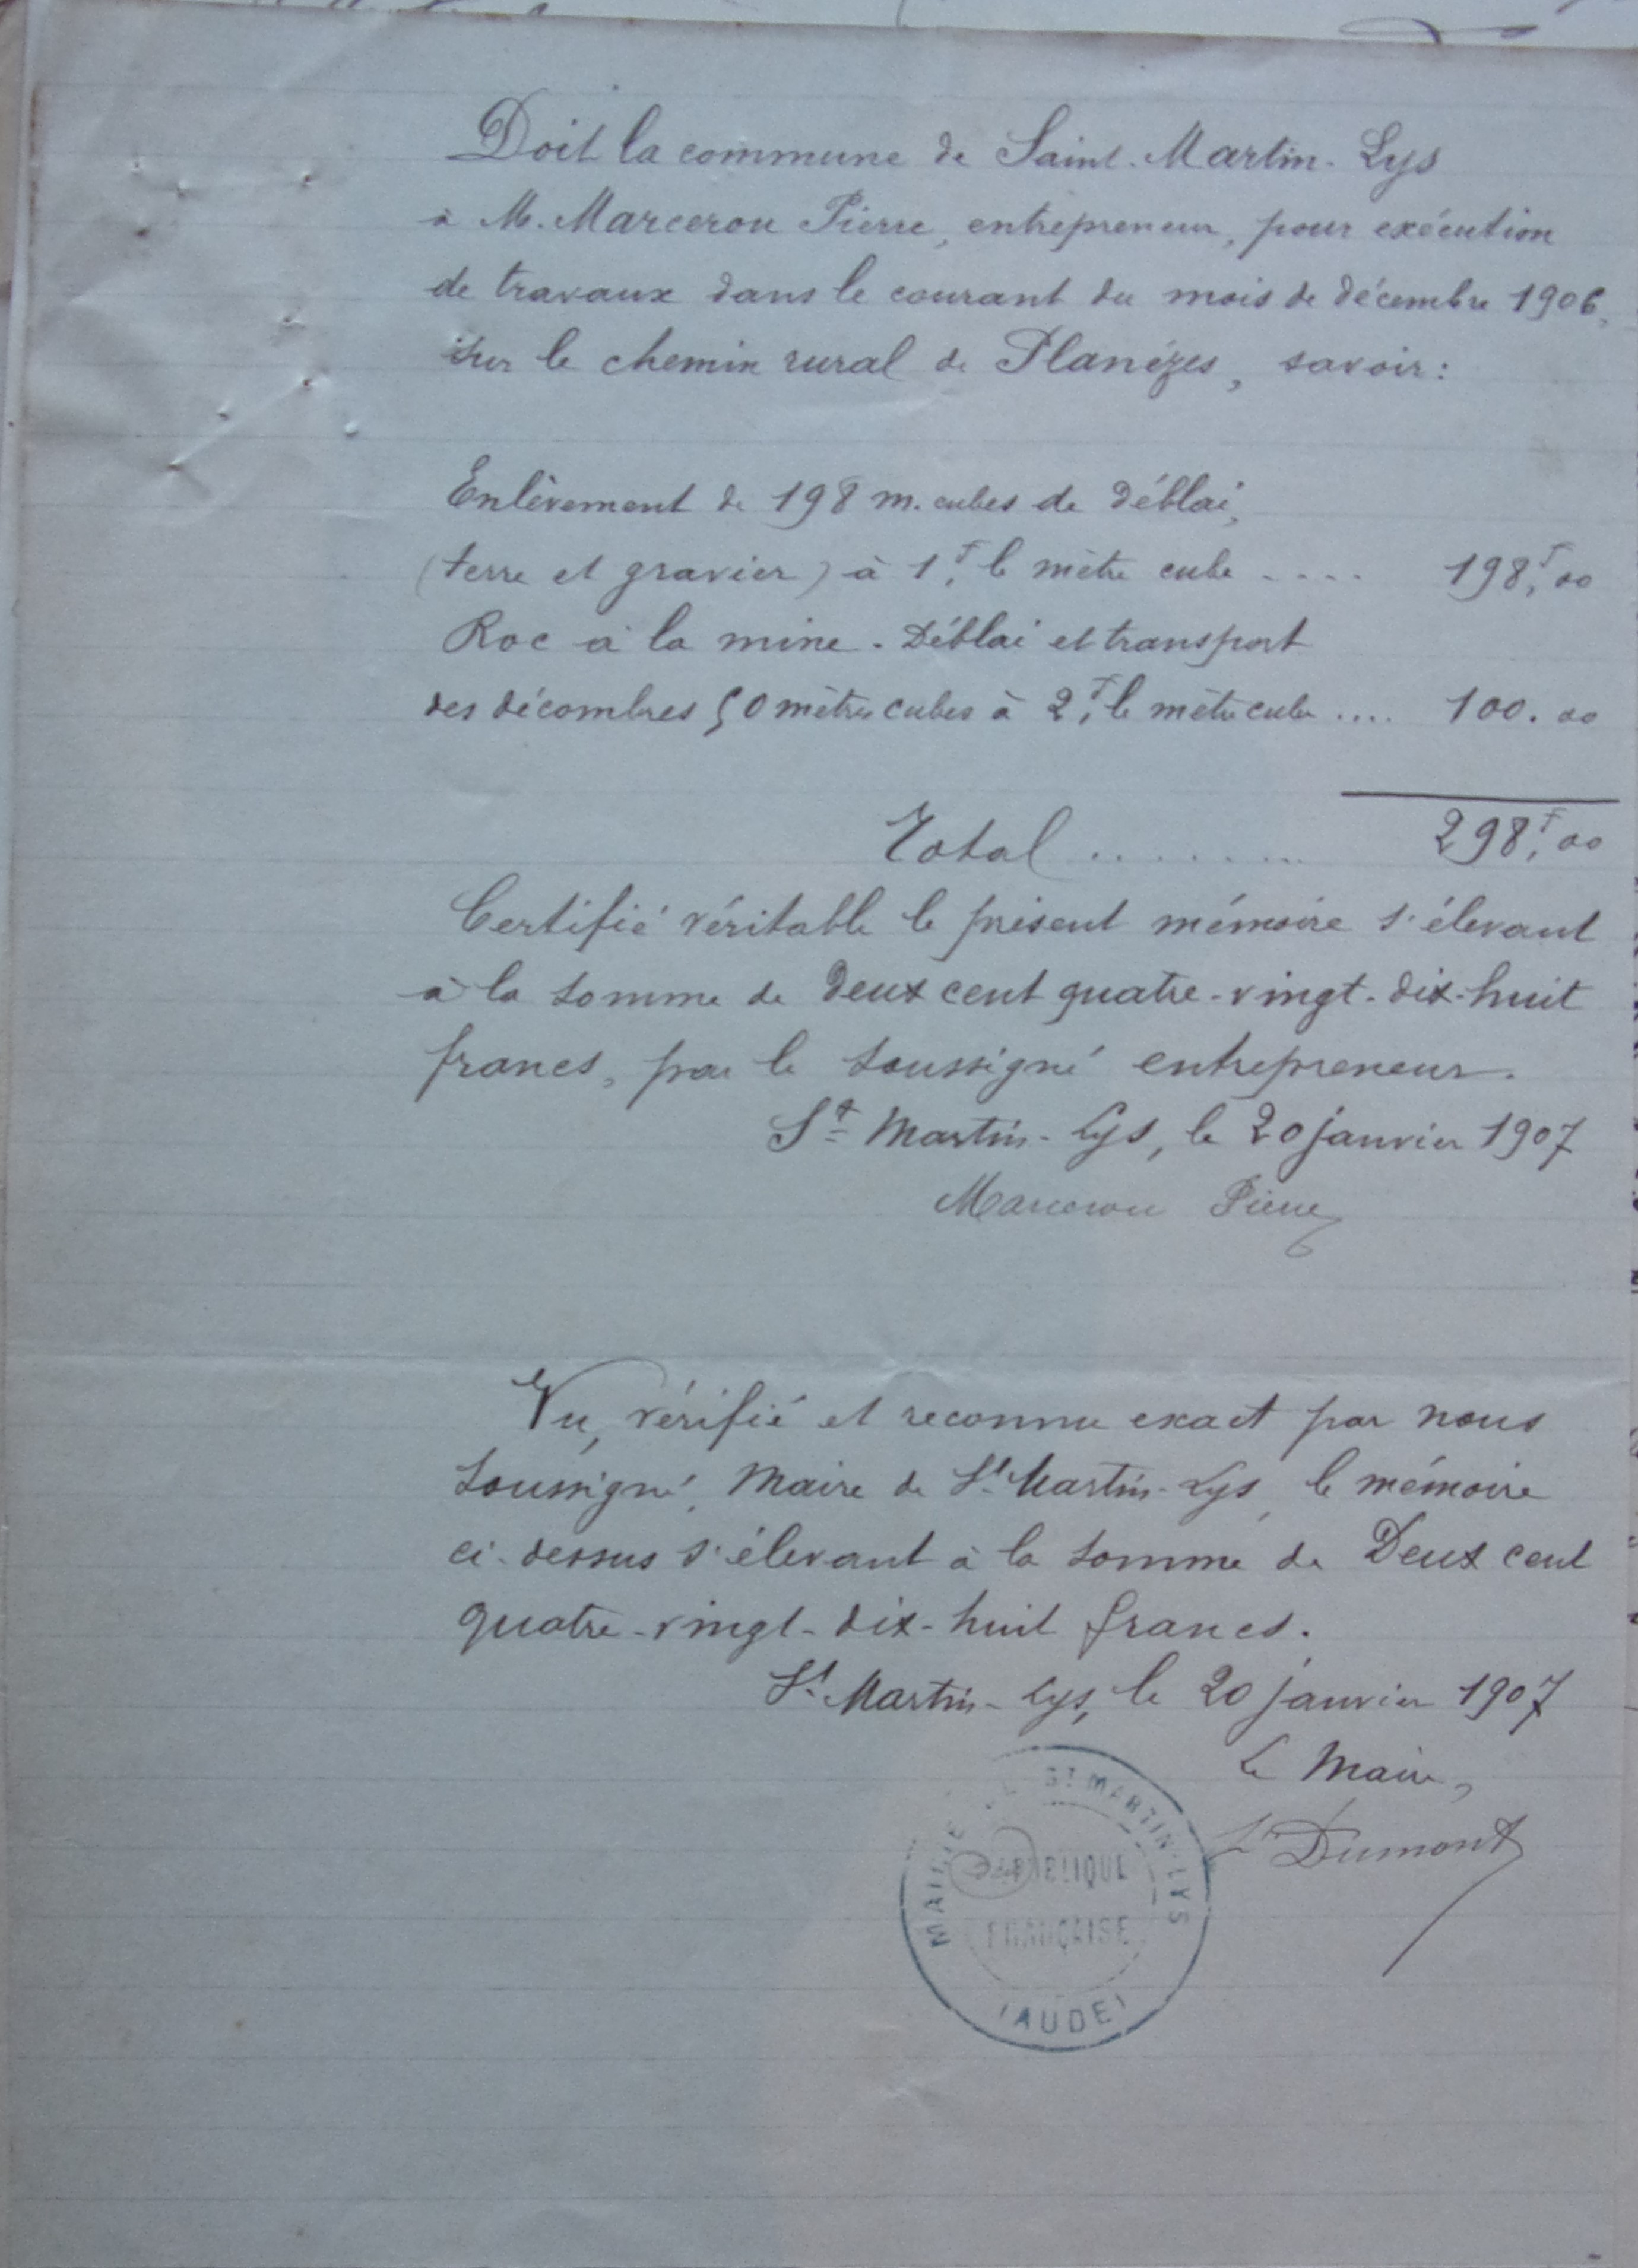 Doit la commune de Saint-Martin-Lys
à M. Marcerou Pierre, entrepreneur, pour exécution
de travaux dans le courant du mois de décembre 1906,
sur le chemin rural de Planèzes, savoir:
Enlèvement de 198 m. cubes de déblai,
(terre et gravier) à 1,f le mètre cube .... 198,f 00
Roc à la mine - Déblai et transport
des décombres 50 mètres cubes à 2,f le mètre cube .... 100. 00
Total ........ 298,f 00
Certifié véritable le présent mémoire s'élevant
à la somme de Deux cent quatre-vingt-dix-huit
francs, par le soussigné entrepreneur.
St Martin-Lys, le 20 janvier 1907
Marcerou Pierre
Vu, vérifié et reconnu exact par nous
soussigné, Maire de St Martin-Lys, le mémoire
ci-dessus s'élevant à la somme de Deux cent
quatre-vingt-dix-huit francs.
St Martin-Lys, le 20 janvier 1907
Le Maire,
Dumont
MAIRIE DE ST MARTIN-LYS
RÉPUBLIQUE
FRANÇAISE
(AUDE)